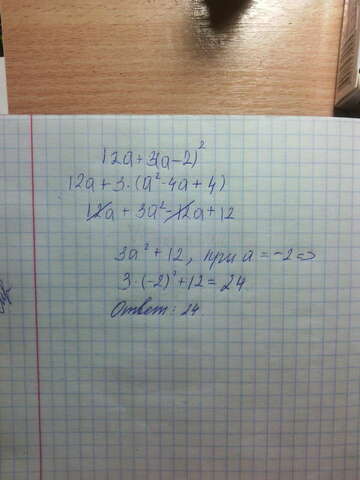 12a+3(a-2)²
12a+3·(a²-4a+4)
12a+3a²-12a+12
3a²+12, при a=-2=>
3·(-2)²+12=24
Ответ: 24